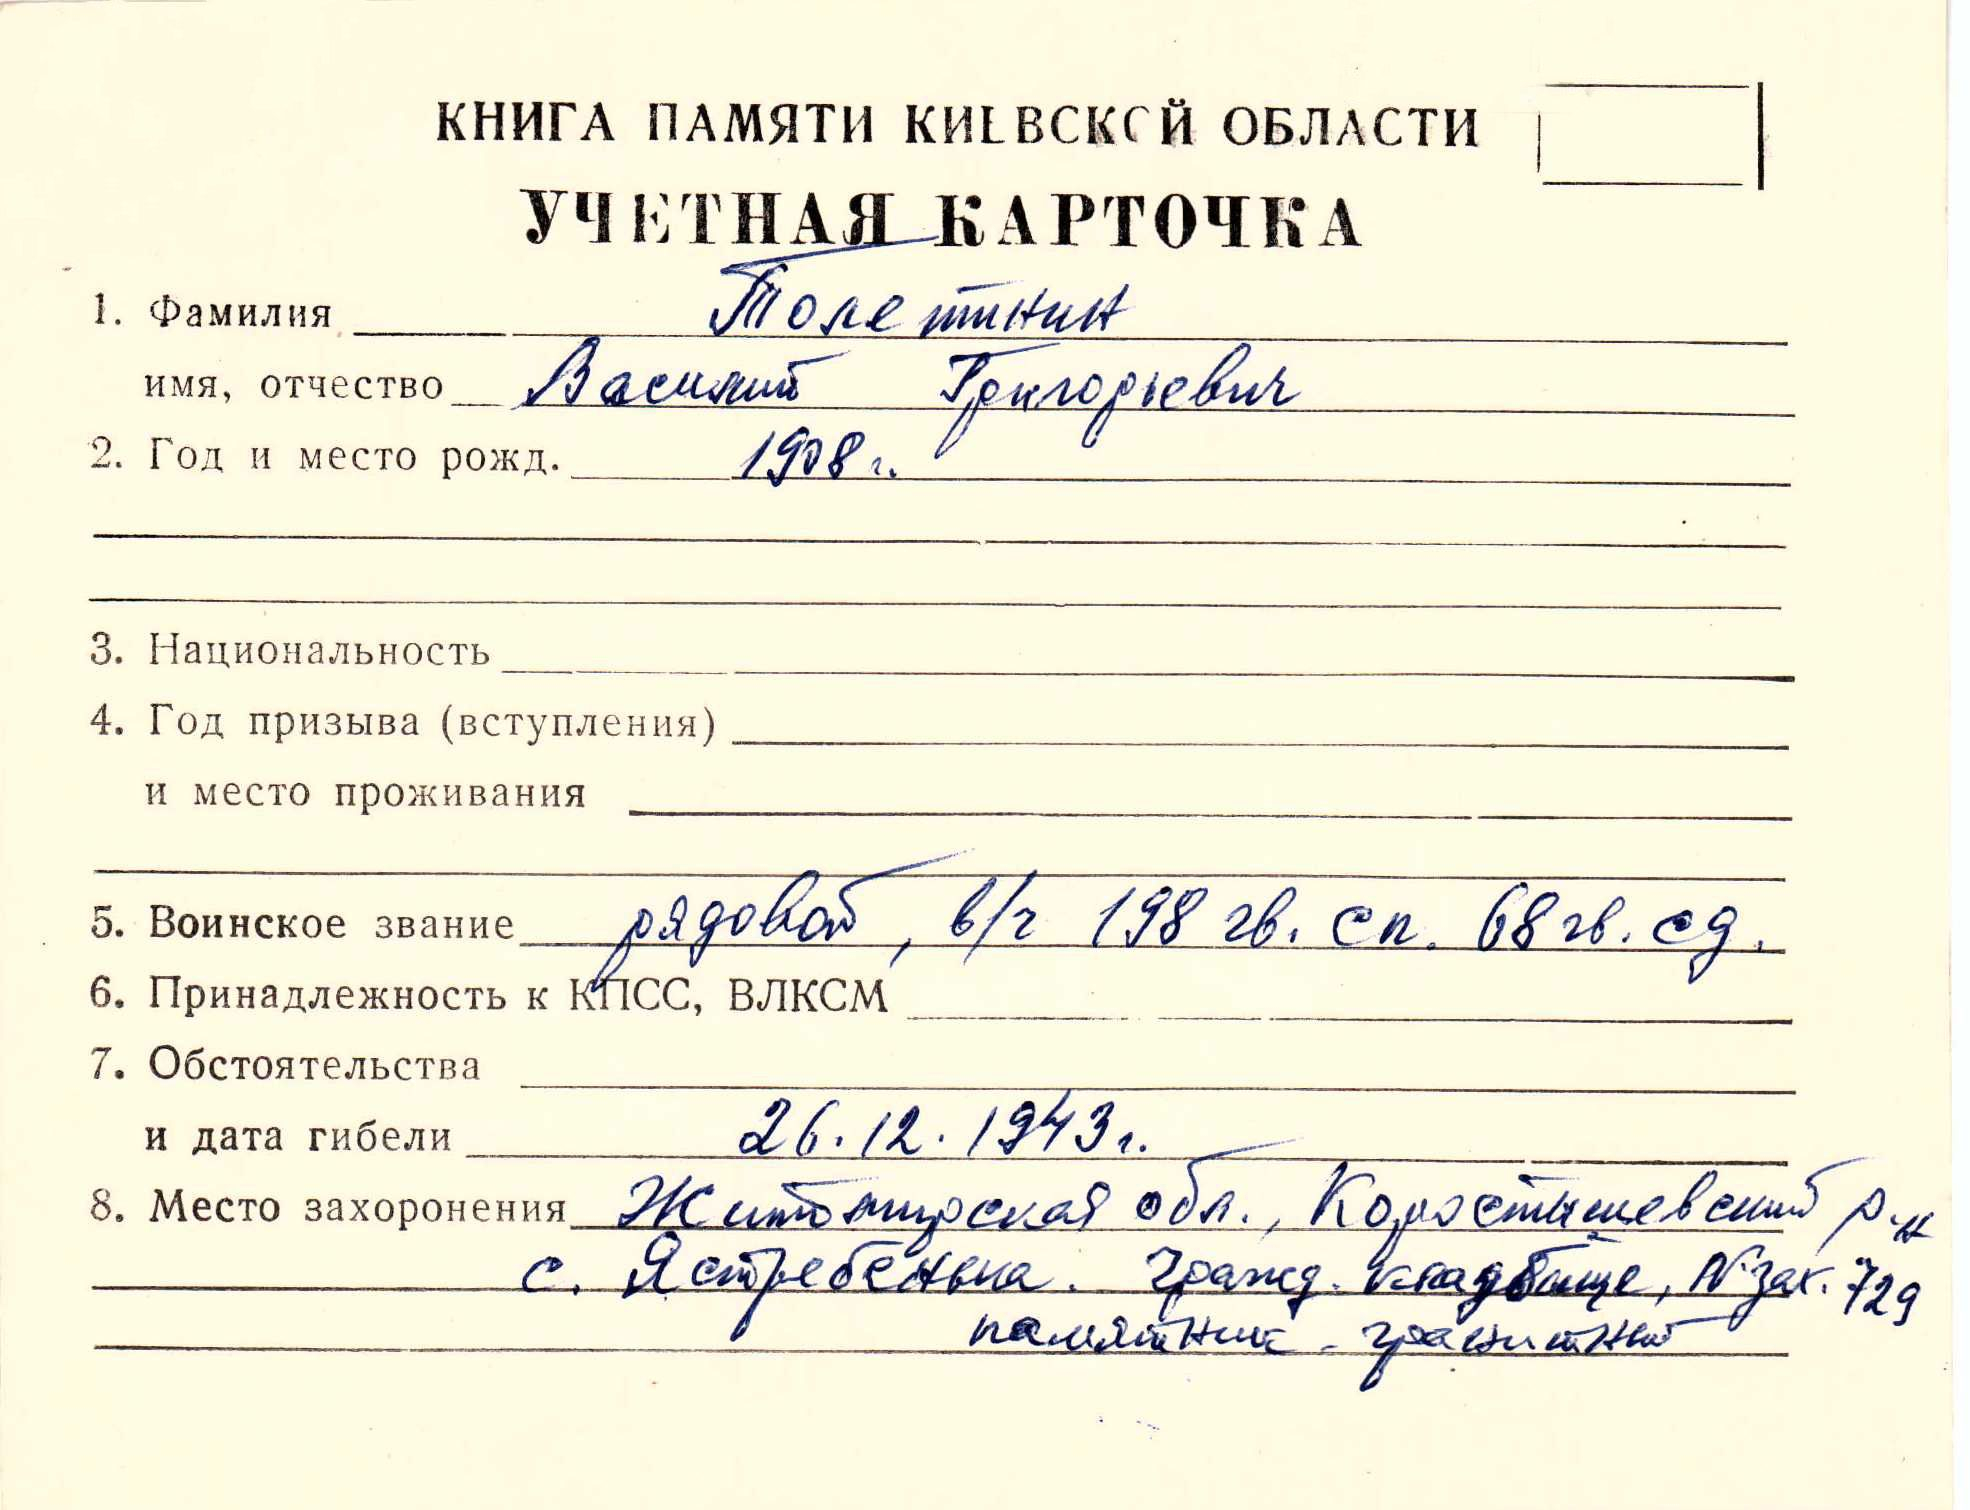 КНИГА ПАМЯТИ КИЕВСКОЙ ОБЛАСТИ
УЧЕТНАЯ КАРТОЧКА
1. Фамилия Толетинин
имя, отчество Василий Григорьевич
2. Год и место рожд. 1908 г.
3. Национальность
4. Год призыва (вступления)
и место проживания
5. Воинское звание рядовой, в/ч 198 гв. сп. 68 гв. сд.
6. Принадлежность к КПСС, ВЛКСМ
7. Обстоятельства
и дата гибели 26.12.1943 г.
8. Место захоронения Житомирская обл., Коростышевский р-н
с. Ястребенька. гражд. кладбище, № зах. 729
памятник - гранитный